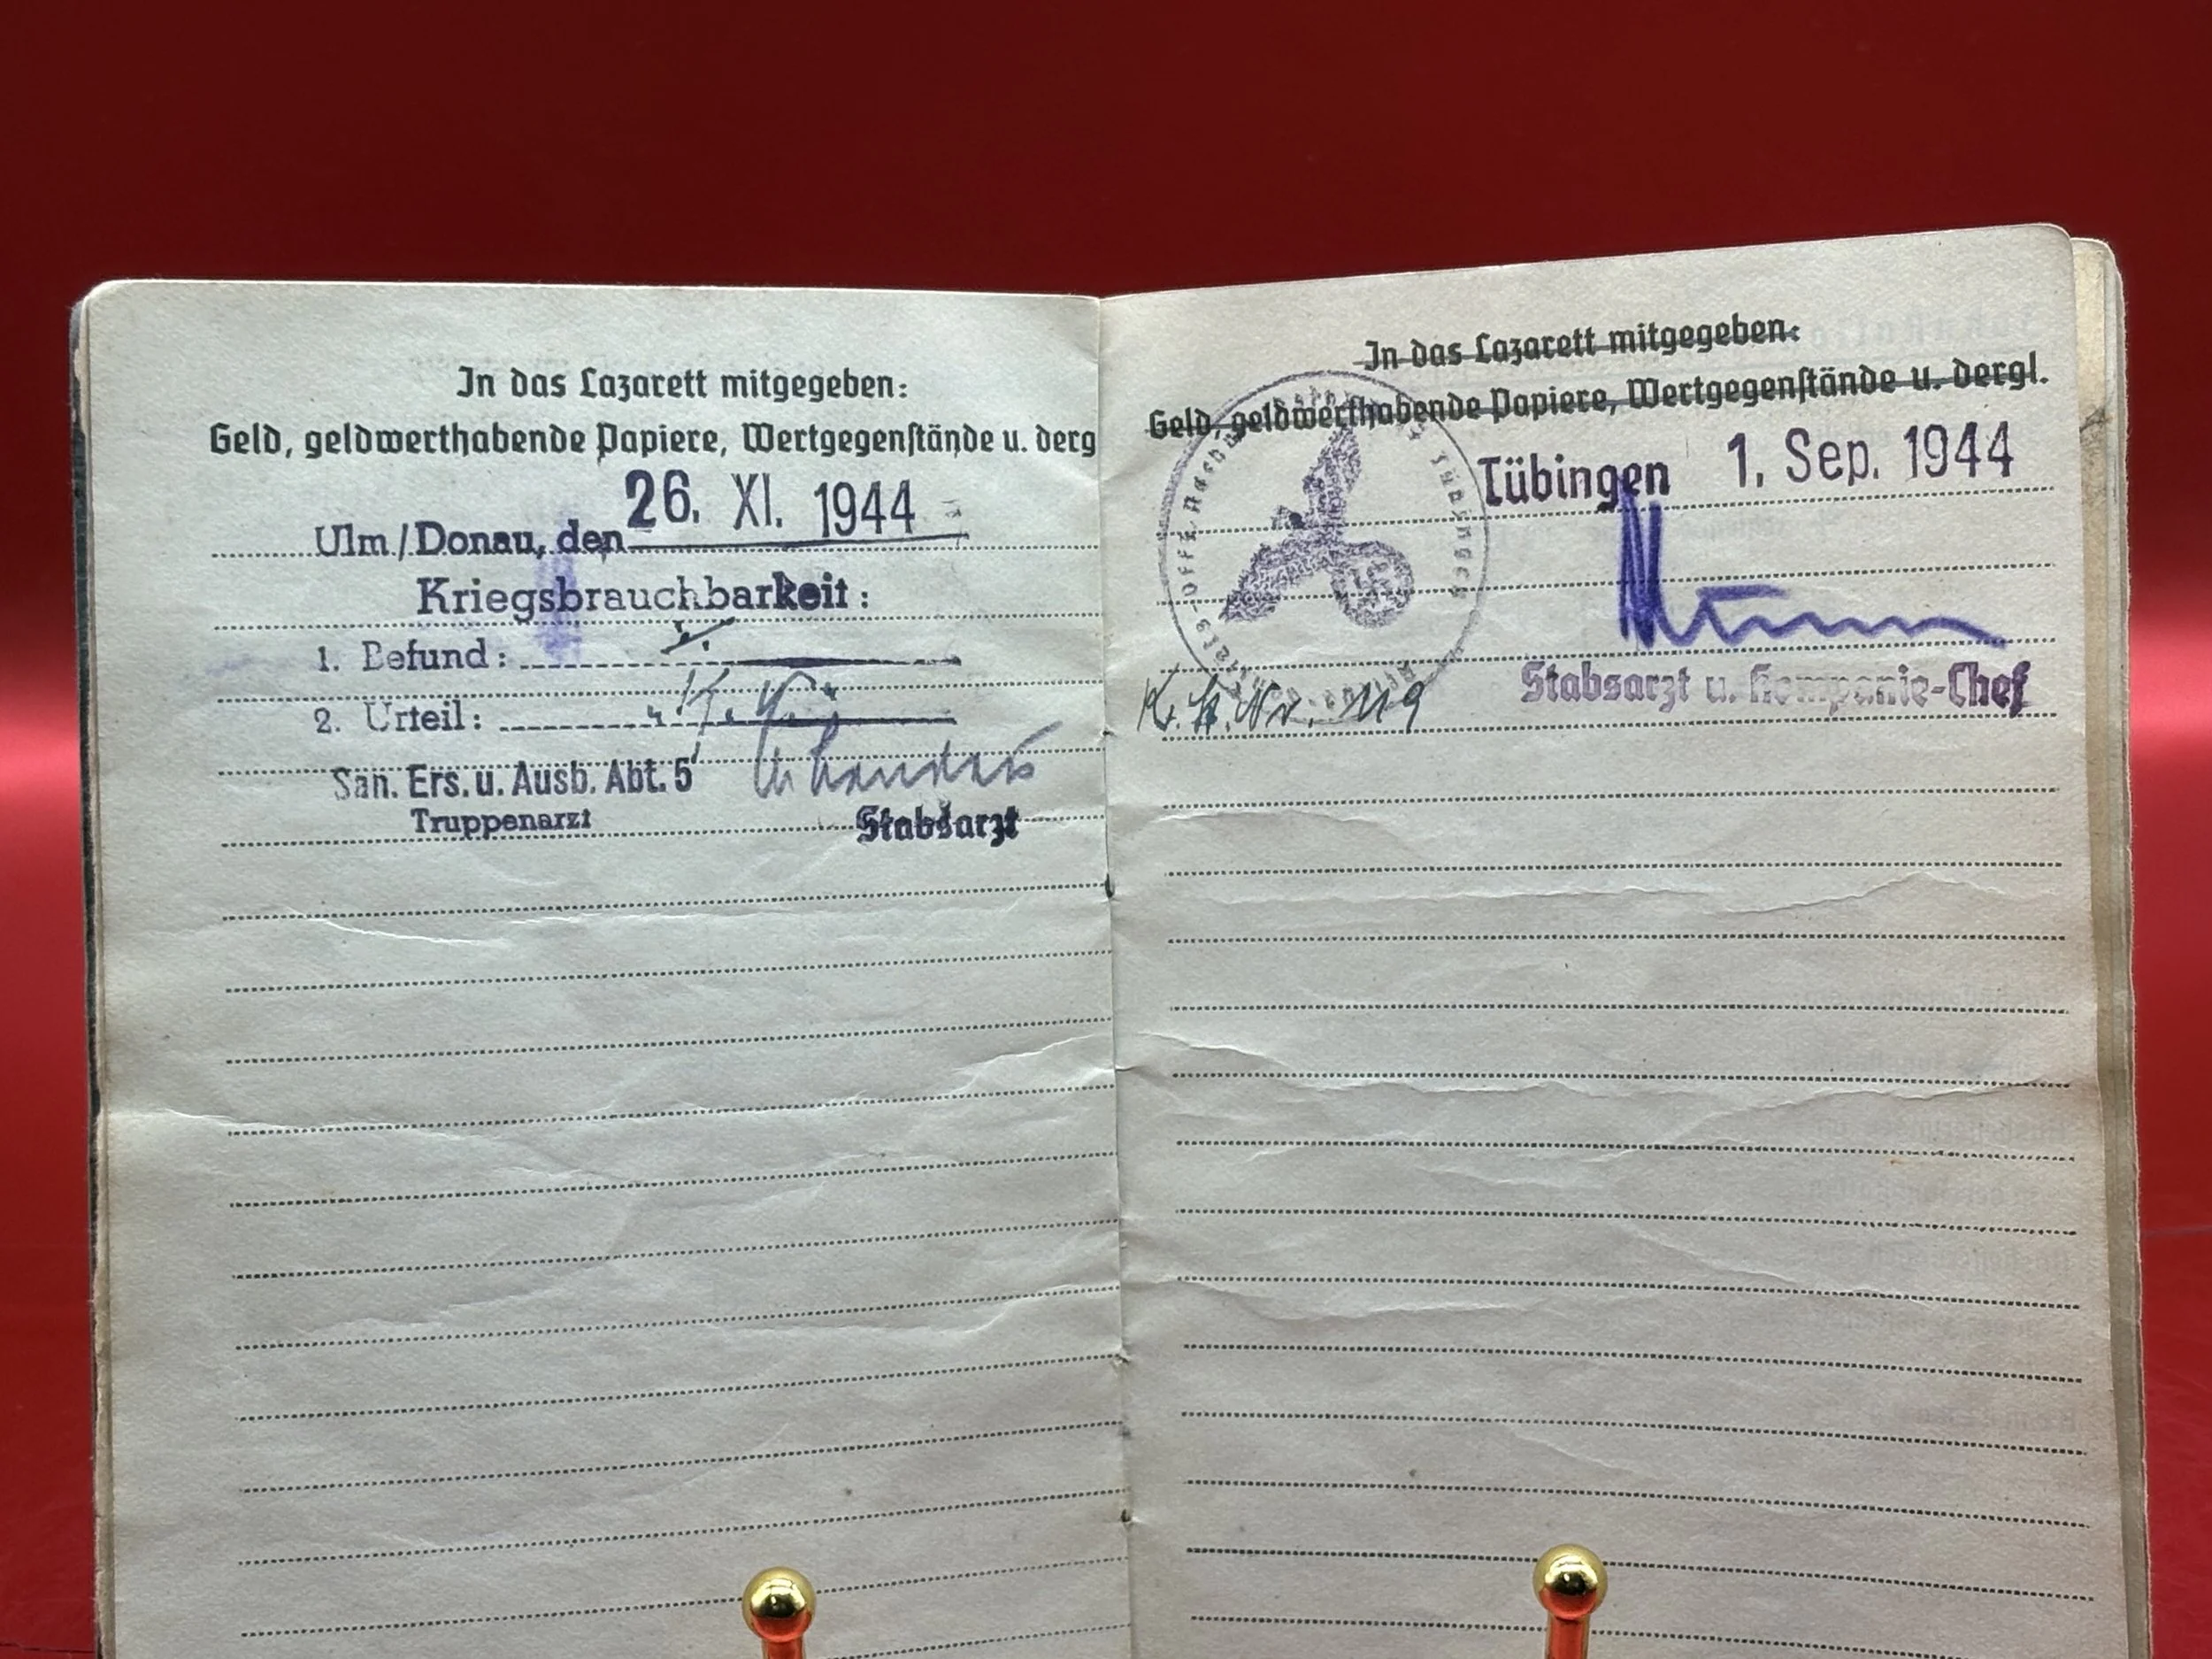 In das Lazarett mitgegeben:
Geld, geldwerthabende Papiere, Wertgegenstände u. derg
Ulm/Donau, den 26. XI. 1944
Kriegsbrauchbarkeit:
1. Befund:
2. Urteil: k.v.
San. Ers. u. Ausb. Abt. 5
Truppenarzt
Stabsarzt
In das Lazarett mitgegeben:
Geld, geldwerthabende Papiere, Wertgegenstände u. dergl.
Tübingen 1. Sep. 1944
Stabsarzt u. Kompanie-Chef
Nr. 119
Tübingen